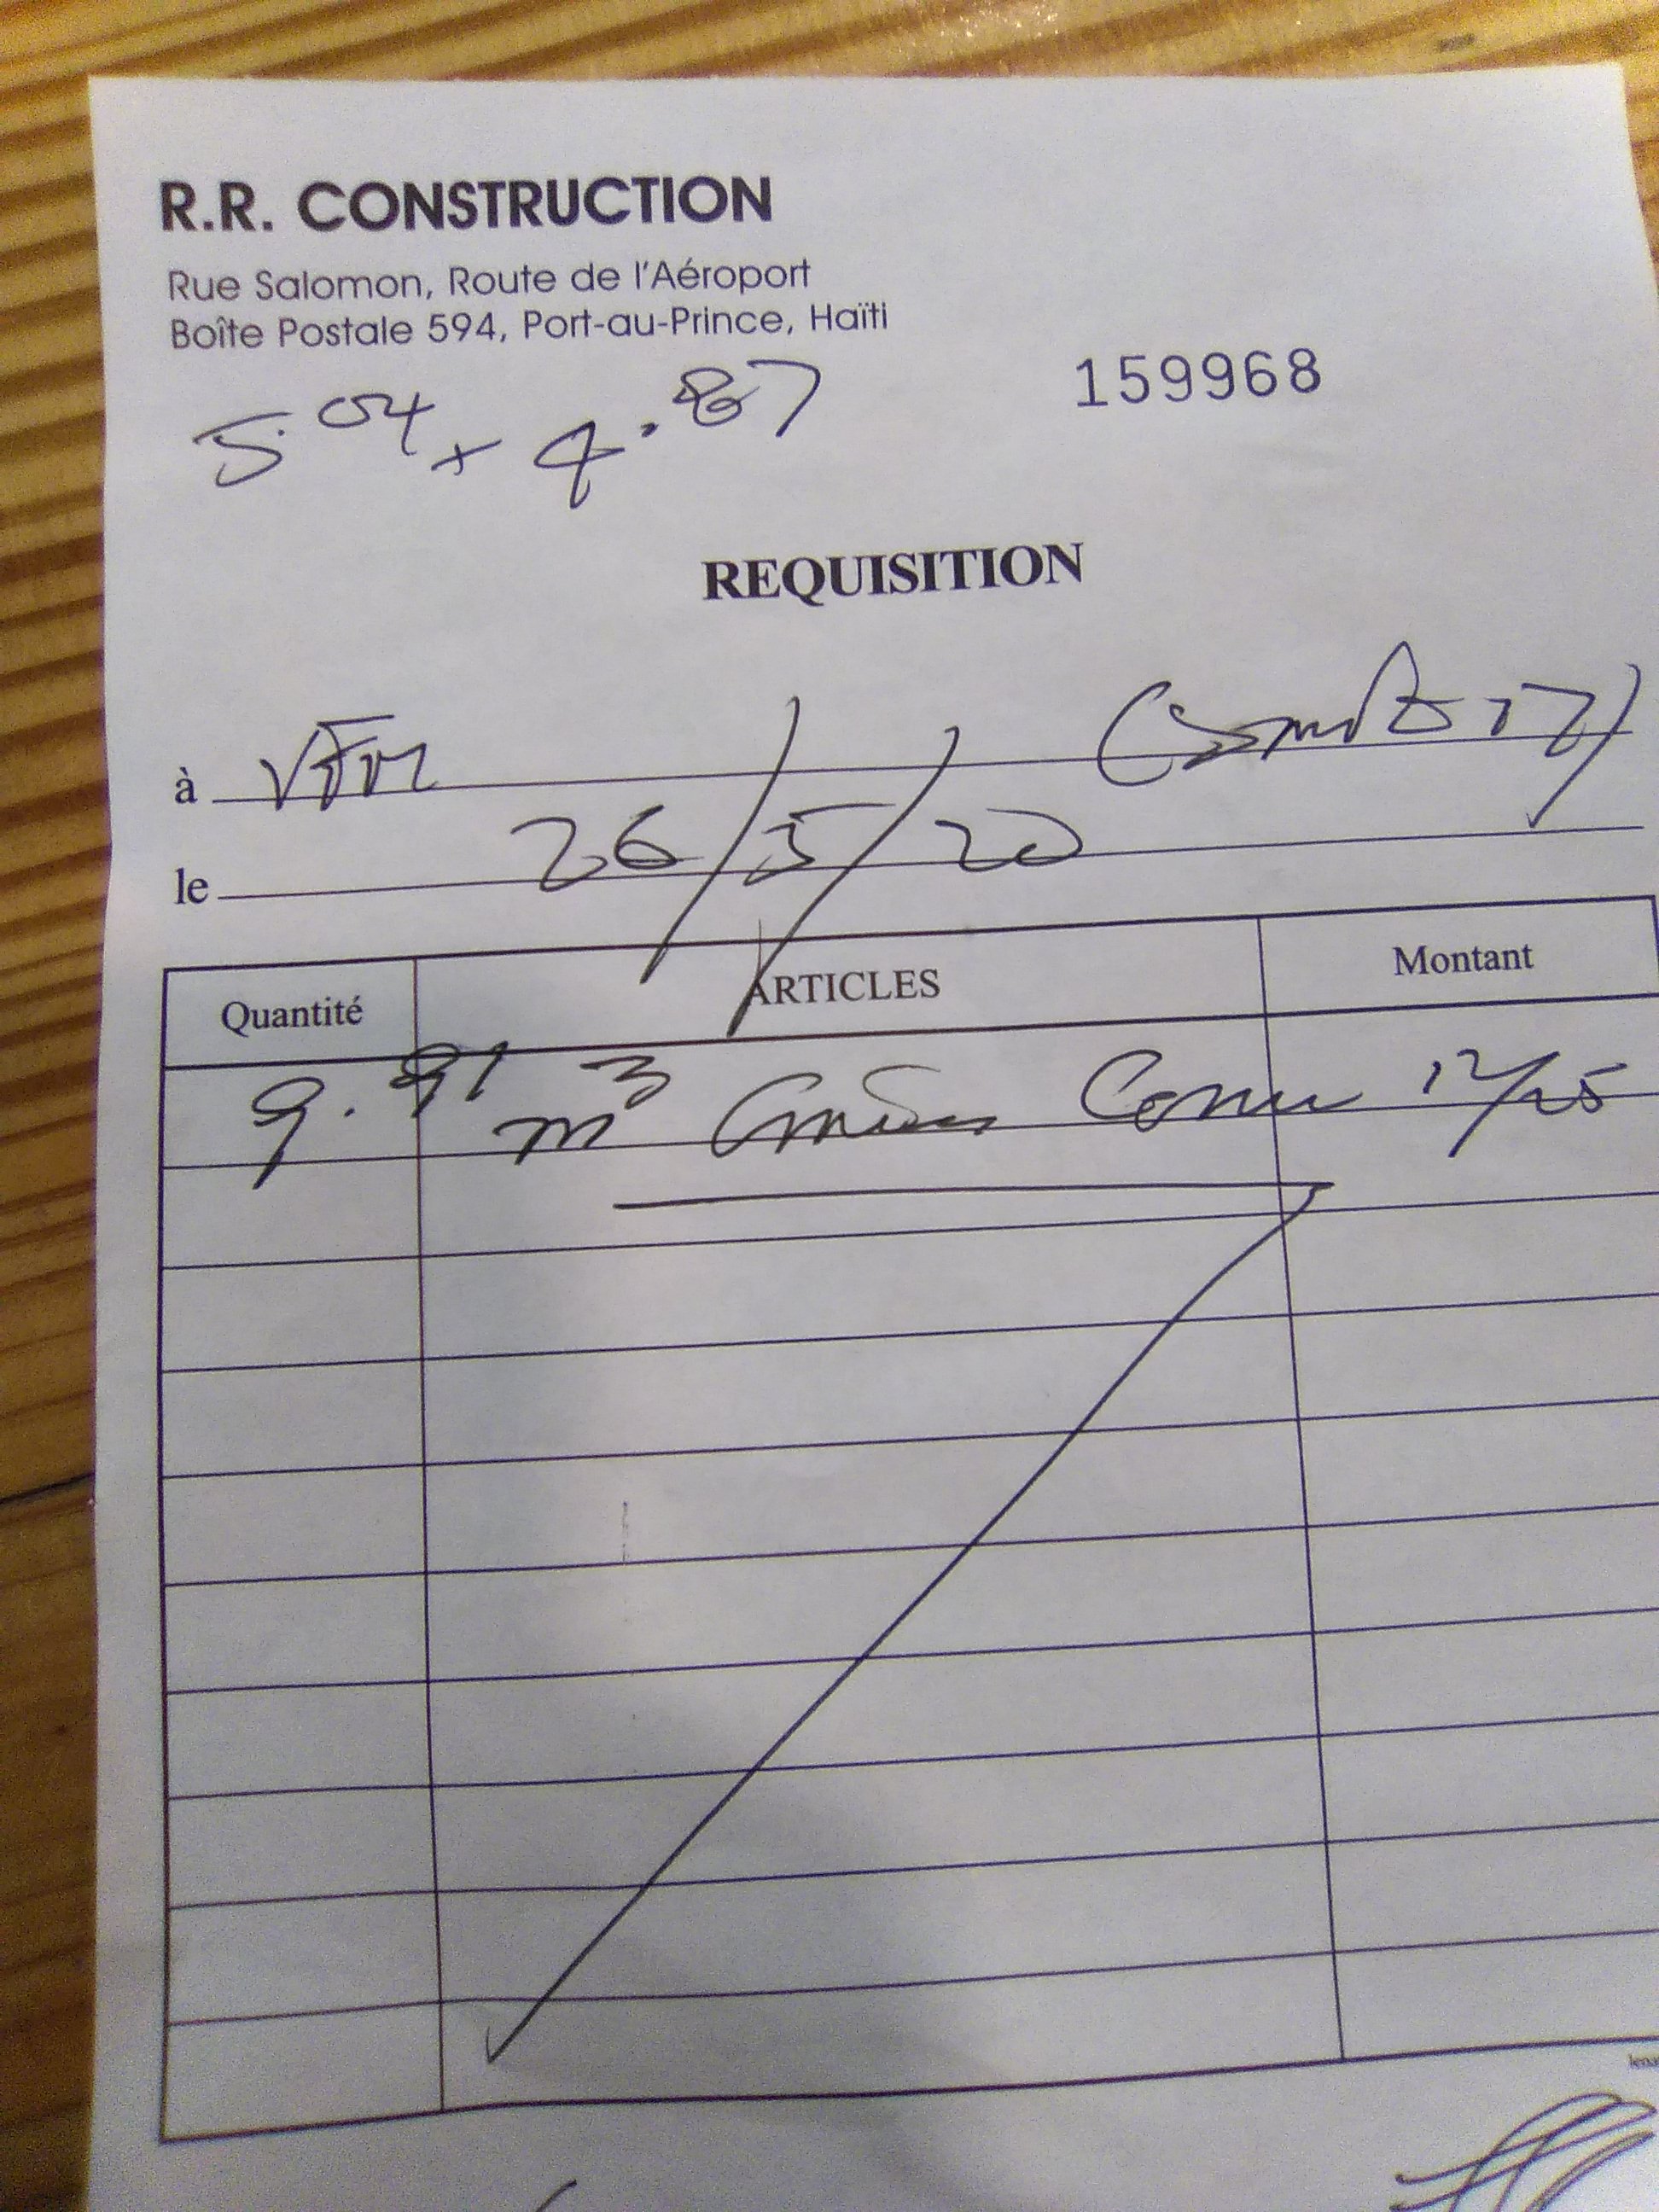 R.R. CONSTRUCTION
Rue Salomon, Route de l'Aéroport
Boîte Postale 594, Port-au-Prince, Haïti
159968
5.04 + 4.87
REQUISITION
à VTM
le 26/5/20
Quantité ARTICLES Montant
9.91 m³ 12/25